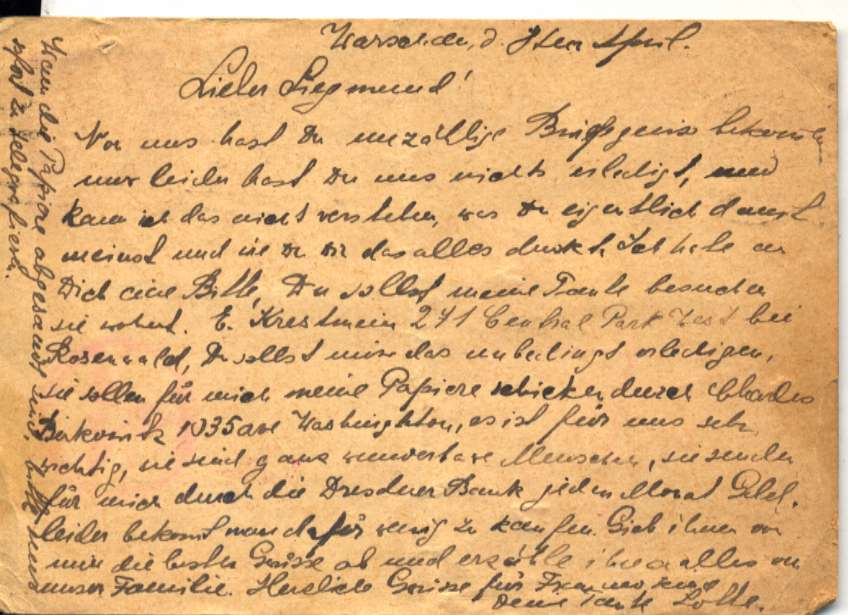 Warschau, d. 9ten April.
Lieber Siegmund!
Von uns hast Du unzählige Briefe bekommen
nur leider hast Du uns nichts erledigt, und
kann ich das nicht verstehen, was Du eigentlich damit
meinst und wie Du Dir das alles denkst. Ich habe an
Dich eine Bitte, Du sollst meine Tante besuchen
sie wohnt. E. 271 Central Park West bei
Rosenwald, Du sollst mir das unbedingt erledigen,
sie sollen für mich meine Papiere schicken durch Charles
1035 ave Washington, es ist für uns sehr
wichtig, sie sind ganz wunderbare Menschen, sie senden
für mich durch die Dresdner Bank jeden Monat Geld.
leider bekommt man dafür wenig zu kaufen. Gieb ihnen von
mir die besten Grüsse ab und erzähle ihnen alles von
unser Familie. Herzliche Grüsse für
Deine Tante Lotte.
Wenn die Papiere abgesandt sind, bitte uns
sofort zu telegrafieren.